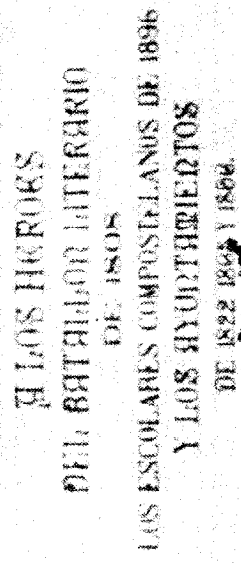 A LOS HEROES
DEL BATALLON LITERARIO
DE 1808
LOS ESCOLARES COMPOSTELANOS DE 1896
Y LOS AYUNTAMIENTOS
DE 1822 1865 Y 1896.